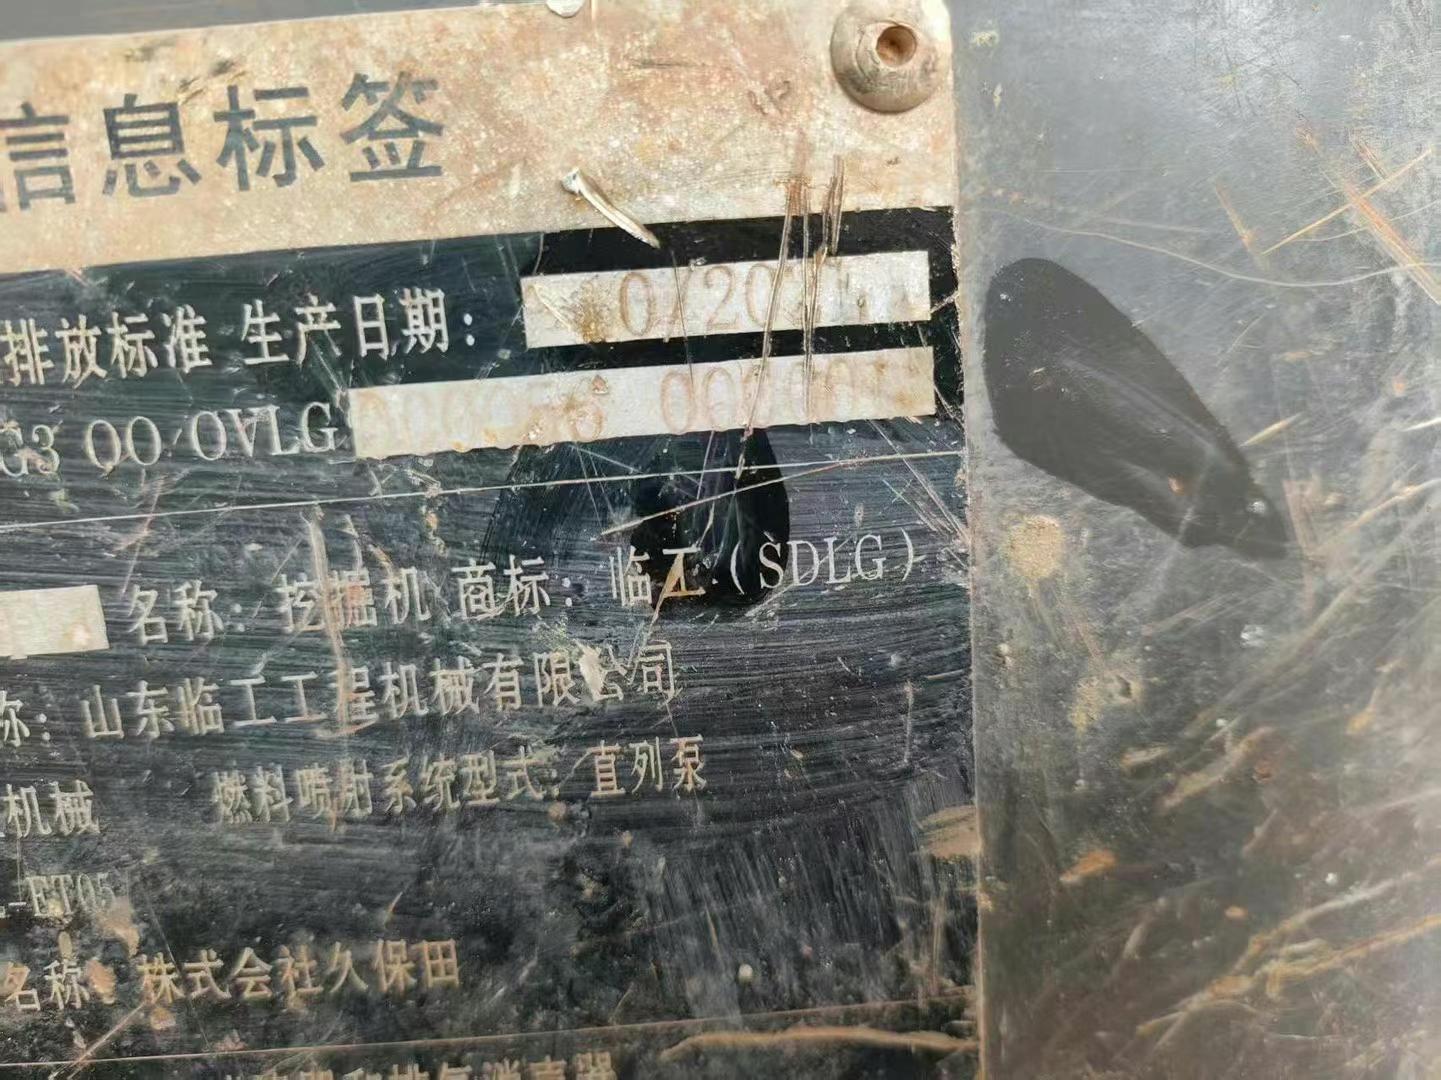 信息标签
排放标准 生产日期:
G3 00 0VLG
名称: 挖掘机 商标: 临工 (SDLG)
称: 山东临工工程机械有限公司
机械 燃料喷射系统型式: 直列泵
-ET05
名称: 株式会社久保田
排气消声器